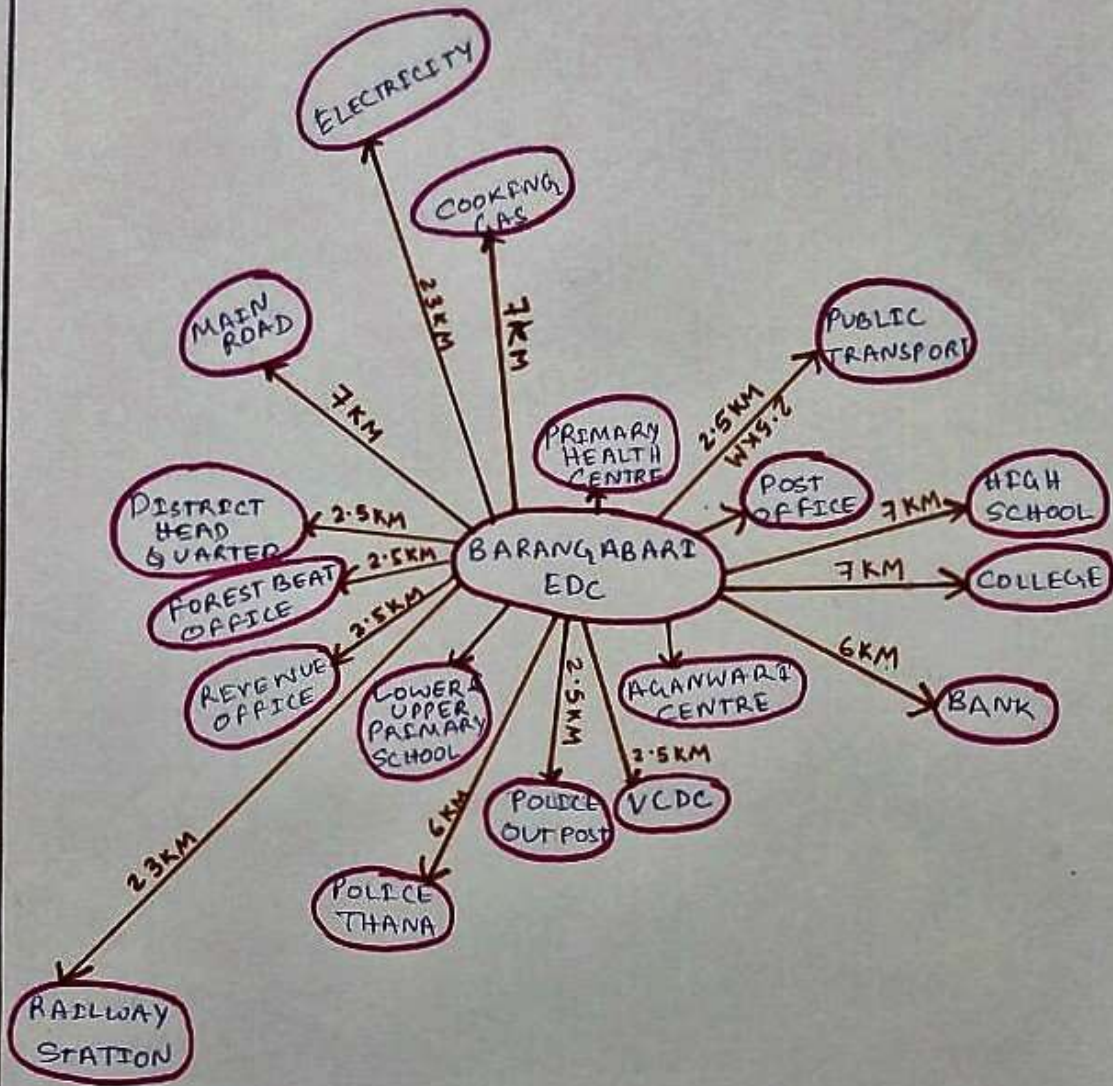 ELECTRICITY
COOKING
GAS
23KM
7KM
MAIN
ROAD
7KM
PUBLIC
TRANSPORT
2.5KM
2.5KM
PRIMARY
HEALTH
CENTRE
POST
OFFICE
HIGH
SCHOOL
7KM
DISTRICT
HEAD
QUARTER
2.5KM
BARANGABARI
EDC
COLLEGE
7KM
FOREST BEAT
OFFICE
2.5KM
REVENUE
OFFICE
2.5KM
LOWER &
UPPER
PRIMARY
SCHOOL
AGANWARI
CENTRE
6KM
BANK
2.5KM
POLICE
OUT POST
2.5KM
VCDC
6KM
POLICE
THANA
23KM
RAILWAY
STATION